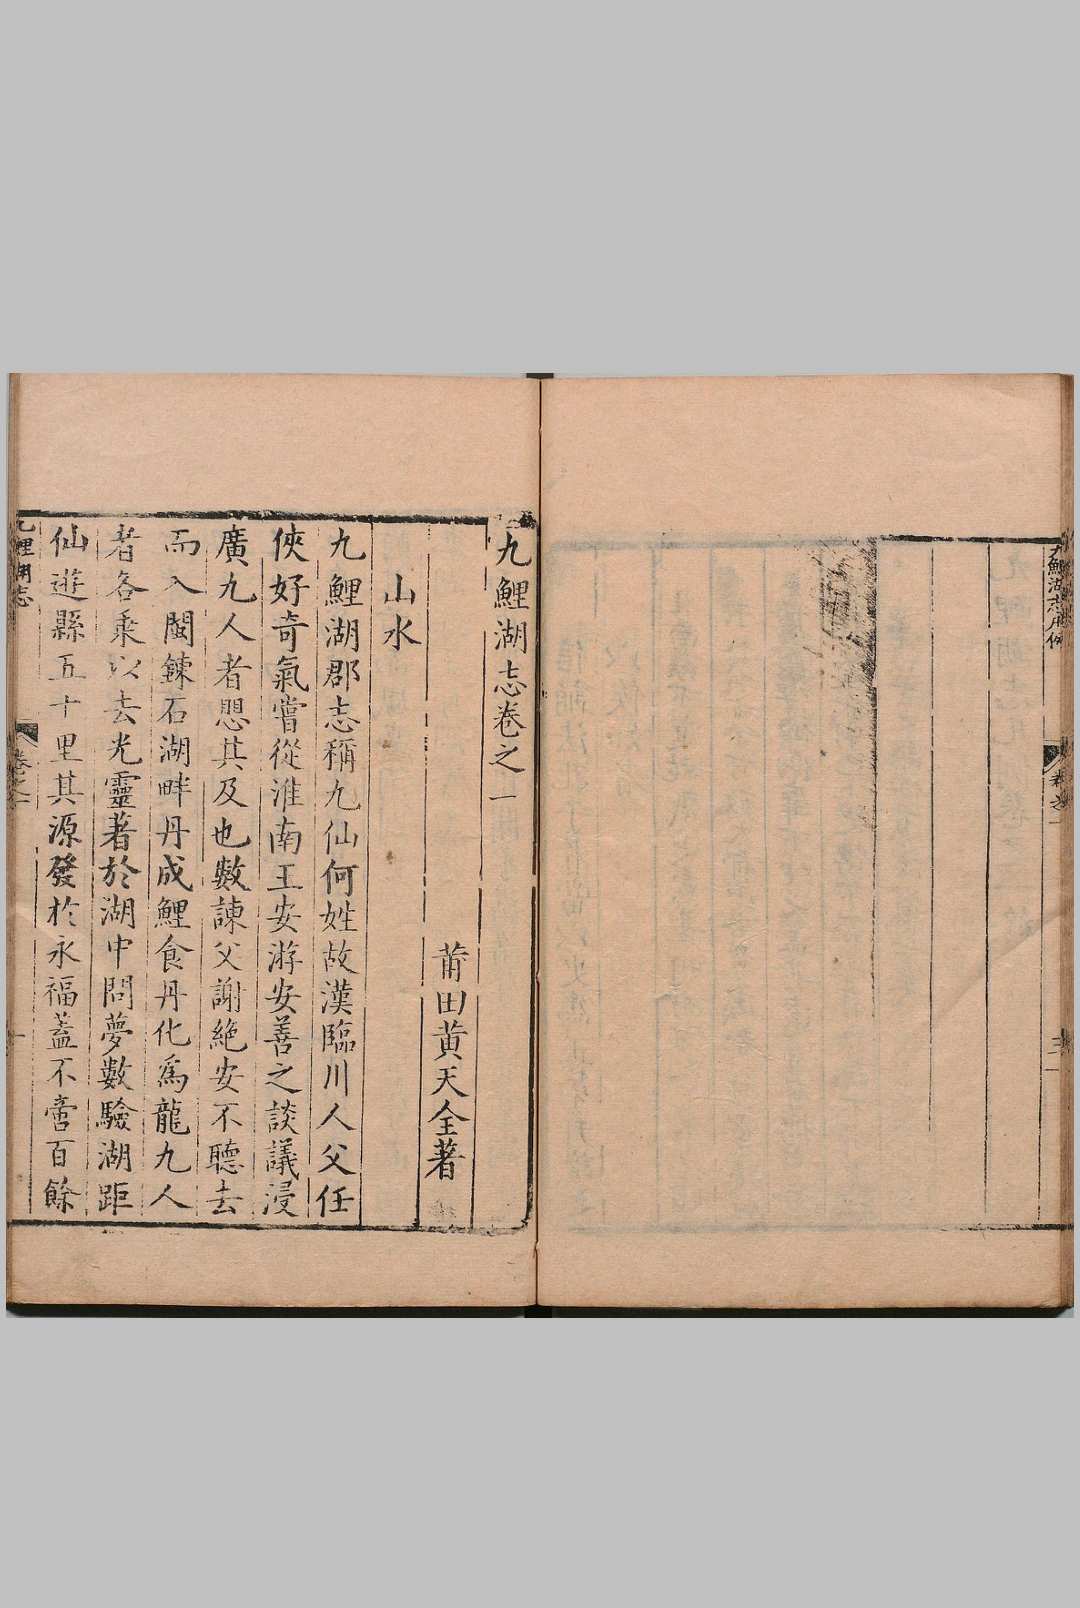 九鯉湖志凡例
卷之一
九鯉湖志卷之一
莆田黃天全著
山水
九鯉湖郡志稱九仙何姓故漢臨川人父任
俠好奇氣嘗從淮南王安游安善之談議浸
廣九人者愳其及也數諫父謝絶安不聽去
而入閩鍊石湖畔丹成鯉食丹化爲龍九人
者各乗以去光靈著於湖中問夢數驗湖距
仙遊縣五十里其源發於永福蓋不啻百餘
九鯉湖志
卷之一
一